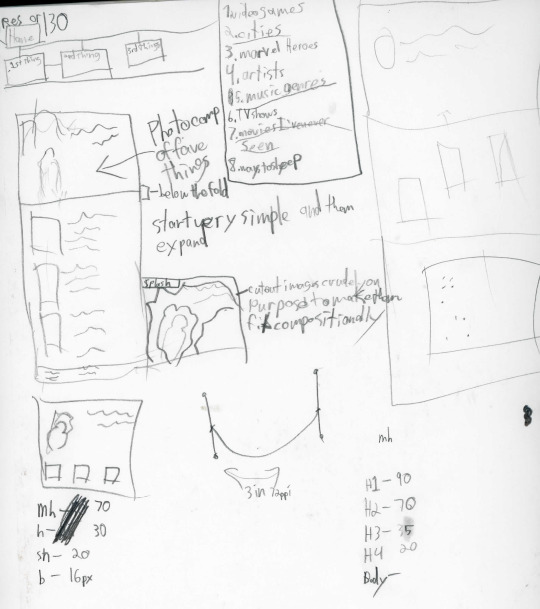 130
Home
1st thing
2nd thing
3rd thing
1. videogames
2. cities
3. marvel Heroes
4. artists
5. music genres
6. TV shows
7. movies I've never
Seen
8. ways to sleep
Photo comp
of fave
things
]-below the fold
start very simple and then
expand
Splash
cutout images crudely on
purpose to make them
fit compositionally
3 in 72ppi
mh- 70
h- 30
sh- 20
b- 16px
mh
H1-90
H2-70
H3-35
H4 20
Body-